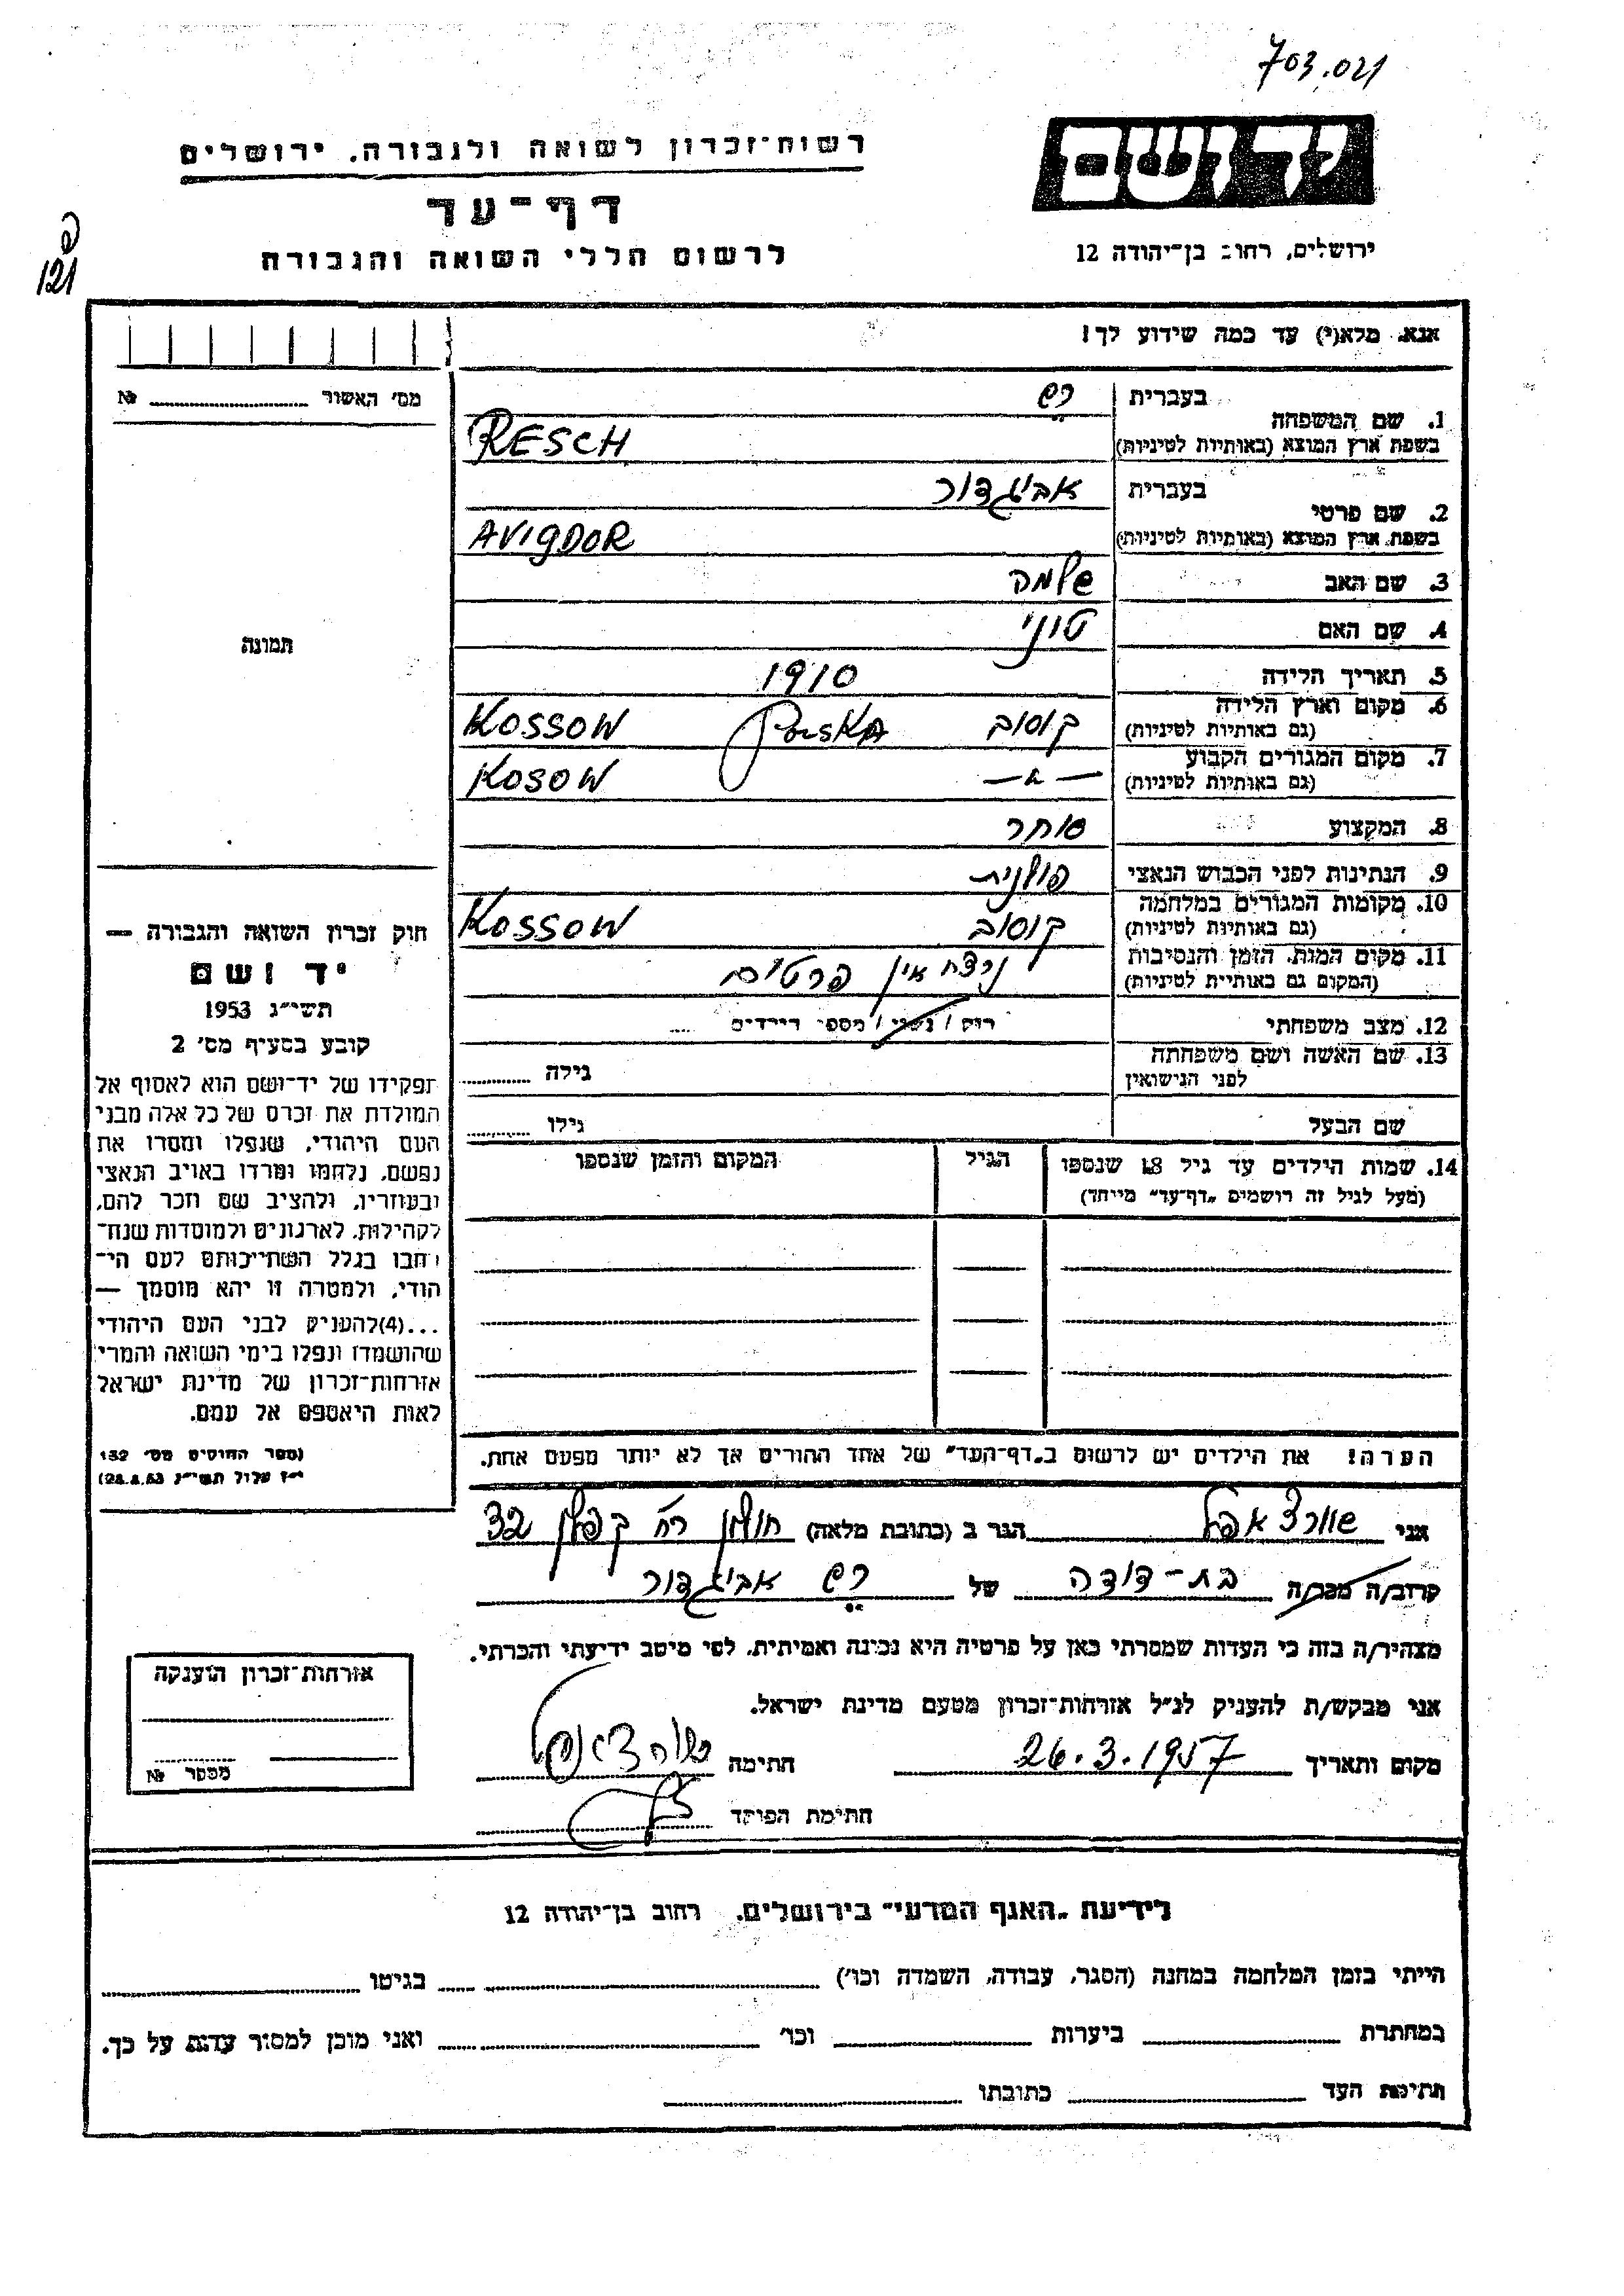 703.021
רשות־זכרון לשואה ולגבורה, ירושלים
יד ושם
דף־עד
ירושלים, רחוב בן־יהודה 12
לרשום חללי השואה והגבורה
121
אנא, מלא(י) עד כמה שידוע לך!
מס' האשור № 
1. שם המשפחה בעברית רש
בשפת ארץ המוצא (באותיות לטיניות) RESCH
2. שם פרטי בעברית אביגדור
בשפת ארץ המוצא (באותיות לטיניות) AVIGDOR
3. שם האב שלמה
4. שם האם טוני
תמונה
5. תאריך הלידה 1910
6. מקום וארץ הלידה (גם באותיות לטיניות) קוסוב Polska KOSSOW
7. מקום המגורים הקבוע (גם באותיות לטיניות) — " — KOSOW
8. המקצוע סוחר
9. הנתינות לפני הכבוש הנאצי פולנית
10. מקומות המגורים במלחמה (גם באותיות לטיניות) קוסוב KOSSOW
11. מקום המות, הזמן והנסיבות (המקום גם באותיות לטיניות) נרצח אין פרטים
12. מצב משפחתי רוק / נשוי / מספר הילדים
13. שם האשה ושם משפחתה לפני הנישואין גילה
שם הבעל גילו
14. שמות הילדים עד גיל 18 שנספו הגיל המקום והזמן שנספו
(מעל לגיל זה רושמים „דף־עד" מיוחד)
הערה! את הילדים יש לרשום ב„דף־העד" של אחד ההורים אך לא יותר מפעם אחת.
חוק זכרון השואה והגבורה —
יד ושם
תשי"ג 1953
קובע בסעיף מס' 2
תפקידו של יד־ושם הוא לאסוף אל
המולדת את זכרם של כל אלה מבני
העם היהודי, שנפלו ומסרו את
נפשם, נלחמו ומרדו באויב הנאצי
ובעוזריו, ולהציב שם וזכר להם,
לקהילות, לארגונים ולמוסדות שנח־
רבו בגלל השתייכותם לעם הי־
הודי, ולמטרה זו יהא מוסמך —
...(4)להעניק לבני העם היהודי
שהושמדו ונפלו בימי השואה והמרי
אזרחות־זכרון של מדינת ישראל
לאות היאספם אל עמם.
(ספר החוקים מס' 132
י"ז אלול תשי"ג 28.8.53)
אני שוורצאפל הגר ב (כתובת מלאה) חולון רח' קפלן 32
קרוב/ה מכר/ה בת-דודה של רש אביגדור
מצהיר/ה בזה כי העדות שמסרתי כאן על פרטיה היא נכונה ואמיתית, לפי מיטב ידיעתי והכרתי.
אני מבקש/ת להעניק לנ"ל אזרחות־זכרון מטעם מדינת ישראל.
מקום ותאריך 26.3.1957 חתימה שוורצאפל
חתימת הפוקד
אזרחות־זכרון הוענקה
מספר №
לידיעת „האגף המדעי" בירושלים, רחוב בן־יהודה 12
הייתי בזמן המלחמה במחנה (הסגר, עבודה, השמדה וכו') בגיטו
במחתרת ביערות וכו' ואני מוכן למסור עדות על כך.
חתימת העד כתובתו